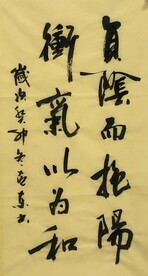 負陰而抱陽
衝氣以為和
歲次癸卯